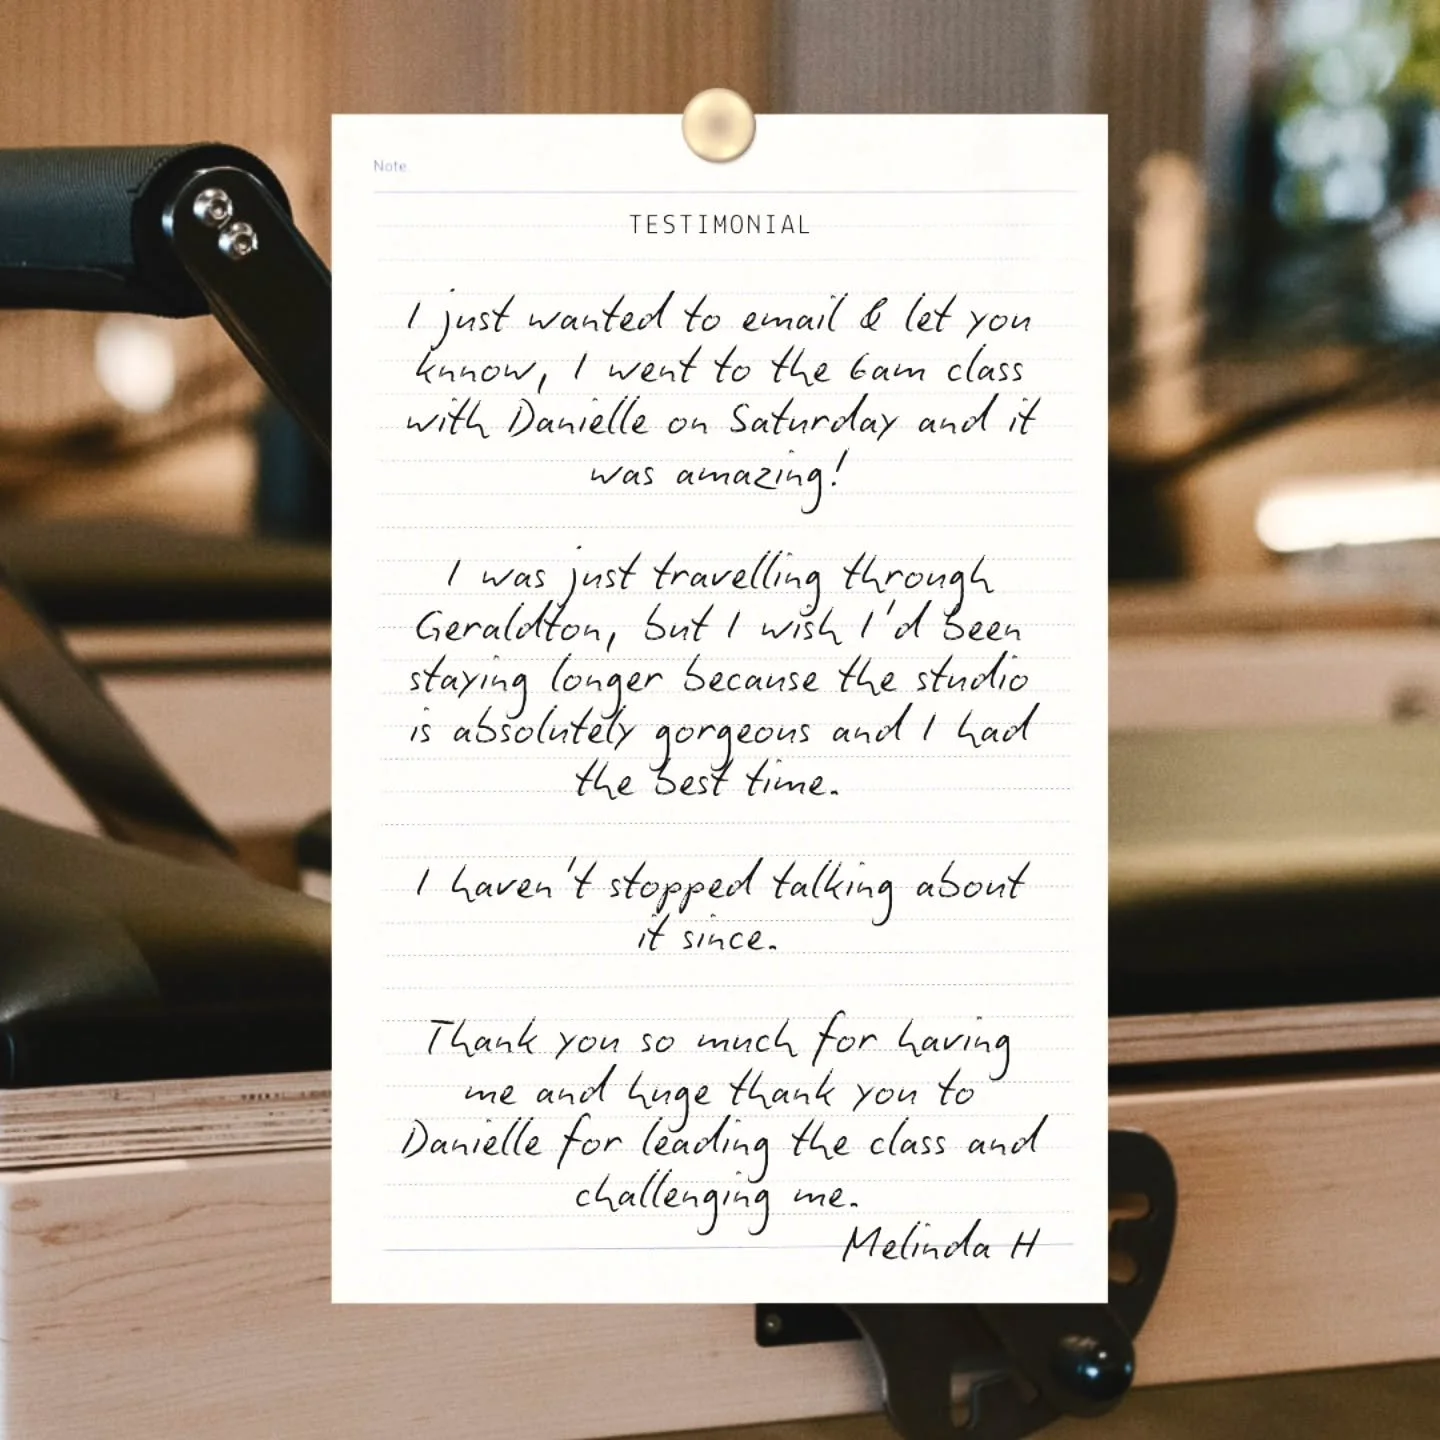 Note.
TESTIMONIAL
I just wanted to email & let you
knnow, I went to the 6am class
with Danielle on Saturday and it
was amazing!
I was just travelling through
Geraldton, but I wish I'd been
staying longer because the studio
is absolutely gorgeous and I had
the best time.
I haven't stopped talking about
it since.
Thank you so much for having
me and huge thank you to
Danielle for leading the class and
challenging me.
Melinda H